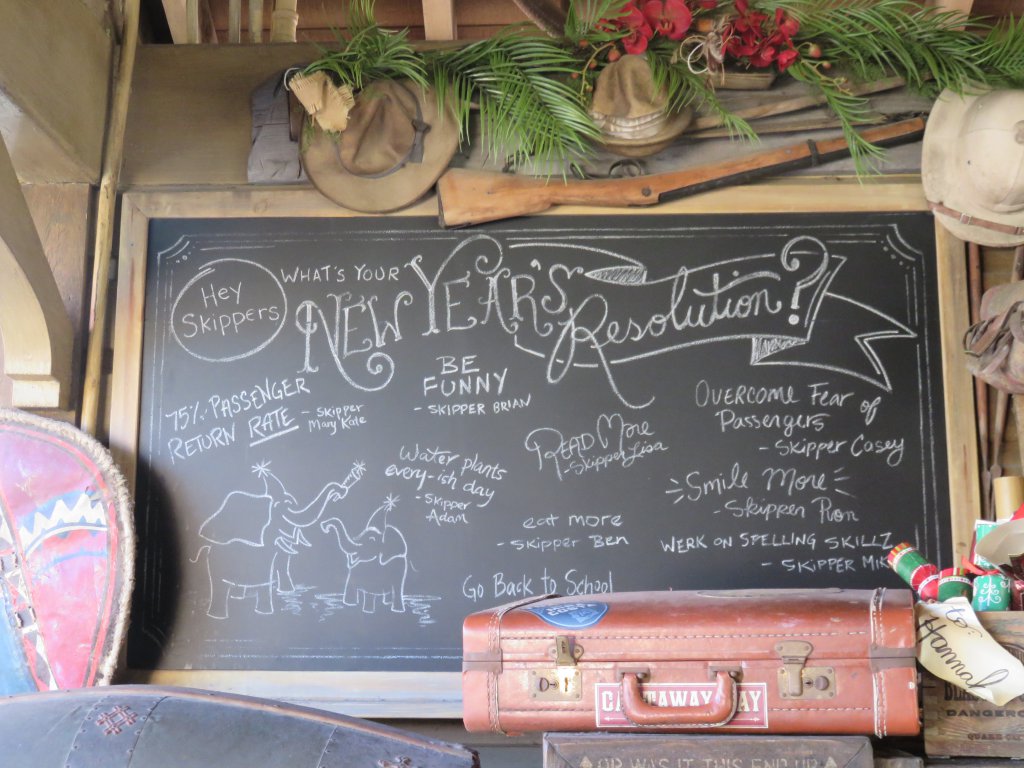 Hey
Skippers
WHAT'S YOUR
NEW YEAR'S
Resolution?
75% PASSENGER
RETURN RATE
- Skipper
Mary Kate
BE
FUNNY
- SKIPPER BRIAN
Overcome Fear of
Passengers
- Skipper Casey
Read More
- Skipper Lisa
Water plants
every-ish day
- Skipper
Adam
Smile More
- Skipper Ron
eat more
- Skipper Ben
WERK ON SPELLING SKILLZ
- SKIPPER MIK
Go Back to School
CASTAWAY BAY
to:
Hannah
DANGEROU
OR WAS IT THIS END UP